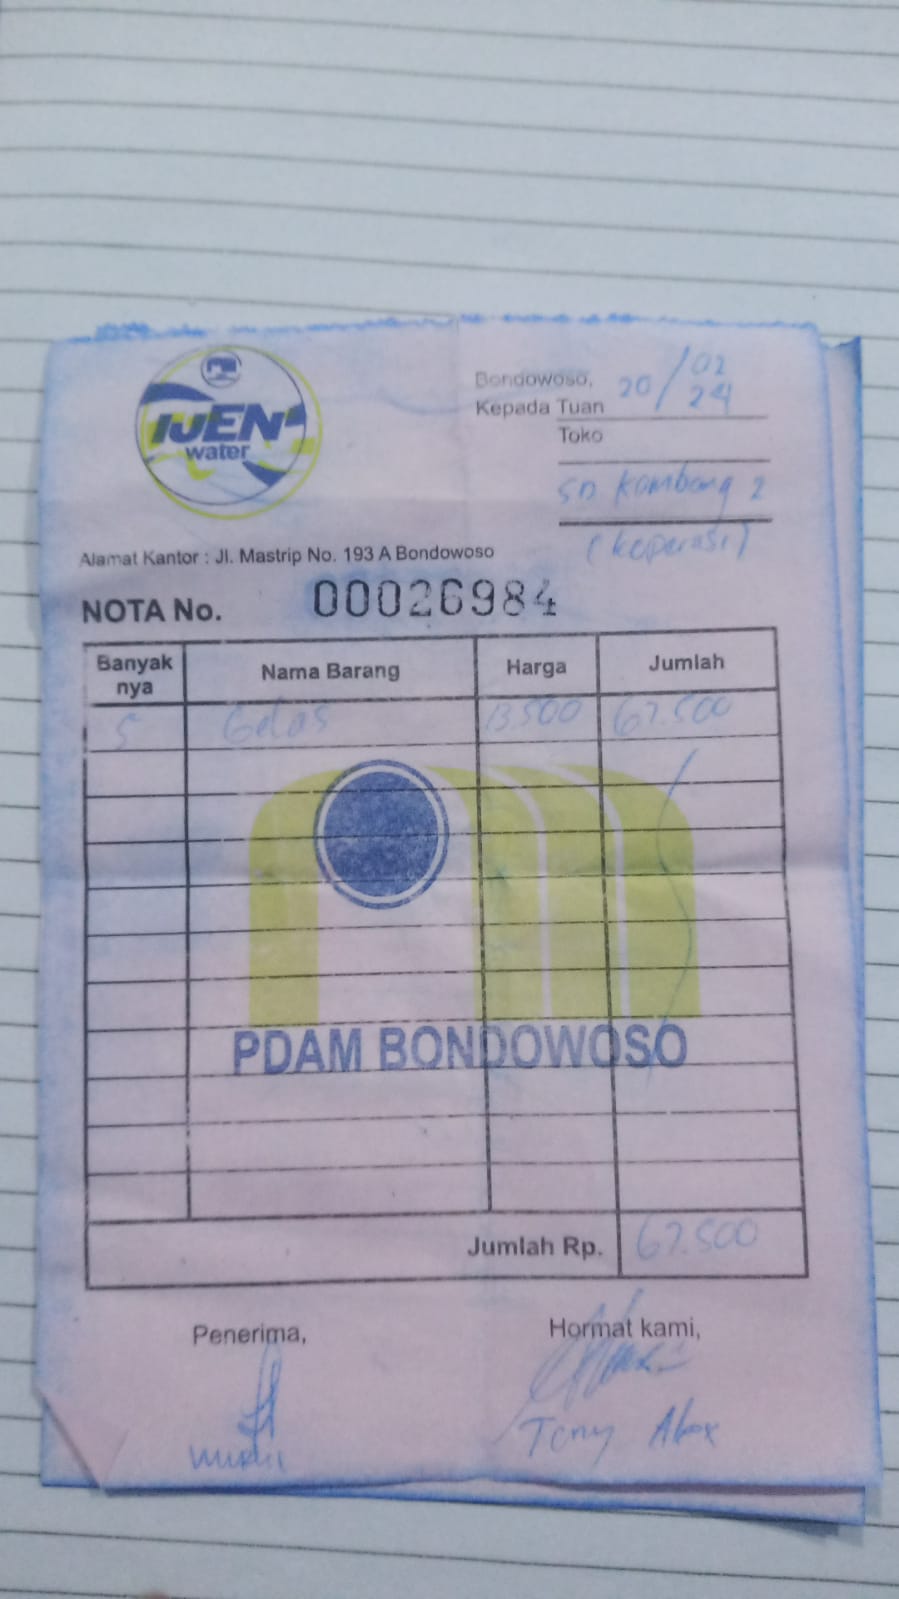 IJEN
water
Bondowoso, 20/02
24
Kepada Tuan
Toko
SD Kembang 2
(koperasi)
Alamat Kantor : Jl. Mastrip No. 193 A Bondowoso
NOTA No. 00026984
Banyak nya Nama Barang Harga Jumlah
5 Gelas 13.500 67.500
PDAM BONDOWOSO
Jumlah Rp. 67.500
Penerima, Hormat kami,
Tony